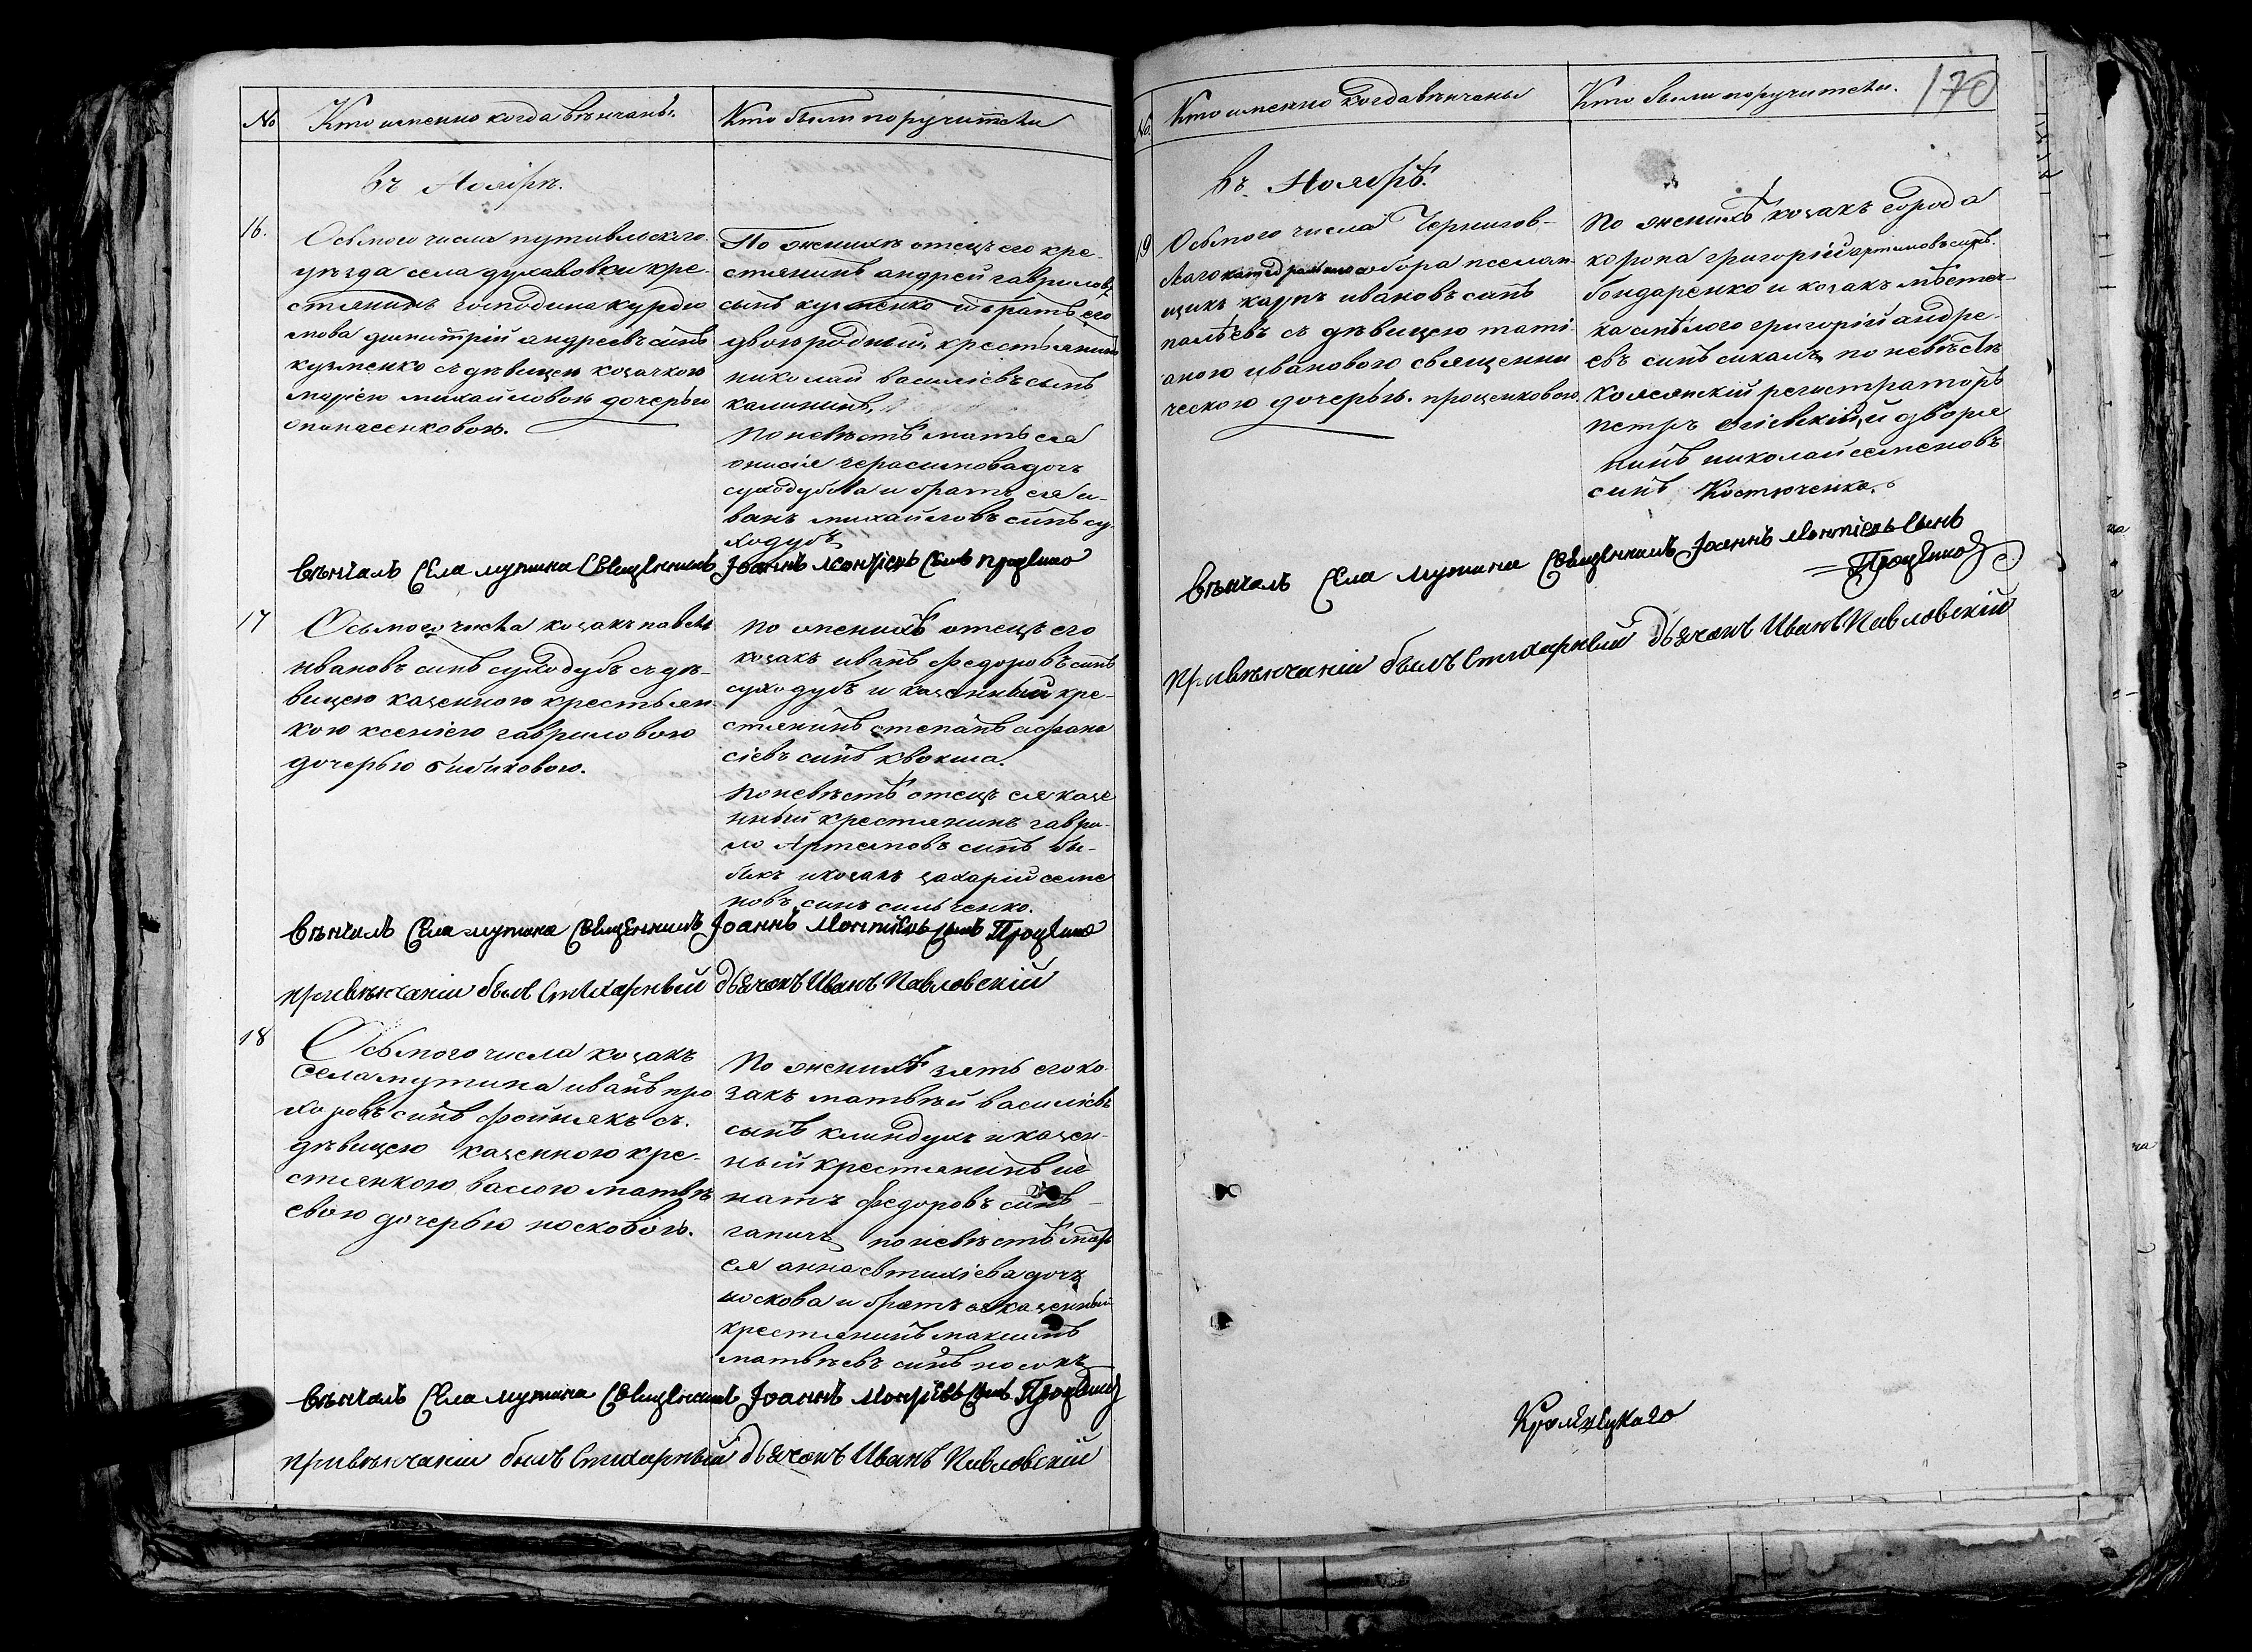 №
Кто именно когда венчанъ.
Кто были поручители
въ Ноябрѣ.
16.
Осьмого числа путивльского
уѣзда села духановки кре-
стянинъ господина курдю
мова димитрій андреевъ синъ
кузменко съ дѣвицею козачкою
маріею михайловою дочерью
опанасенковою.
По женихѣ отецъ его кре-
стянинъ андрей гаврилов
сынъ кузменко и братъ его
двоюродный, крестьянинъ
николай василіевъ сынъ
калининъ,
По невѣстѣ мать ея
онисія герасимова дочъ
суходубова и братъ ея и-
ванъ михайловъ синъ су-
ходубъ
Вѣнчалъ Села мутина Священникъ Іоаннъ Леонтіевъ Сынъ Проценко
17
Осьмого числа козакъ павелъ
ивановъ синъ суходубъ съ дѣ-
вицею казенною крестьян-
кою ксеніею гавриловою
дочерью бибиковою.
по женихѣ отецъ его
козакъ иванъ федоровъ синъ
суходубъ и казенный кре-
стянинъ степанъ афана
сіевъ синъ квокша.
По невѣстѣ отецъ ея казе
нный крестянинъ гаври-
ло Артемовъ синъ би-
бикъ и козакъ захарій семе
новъ синъ сильченко.
Вѣнчалъ Села мутина Священникъ Іоаннъ Леонтіевъ Сынъ Проценко
при вѣнчаніи былъ Стихарный дьячокъ Иванъ Павловскій
18
Осьмого числа козакъ
Села мутина иванъ про
хоровъ синъ фойнякъ съ
дѣвицею казенною кре-
стянкою васою матвѣ
евою дочерью носковою.
По женихѣ зять его ко-
закъ матвѣй василіевъ
сынъ клиндухъ и казен-
ный крестянинъ иг
натъ федоровъ синъ
гапичъ, по невѣстѣ мать
ея анна евтихіева дочъ
носкова и братъ ея казенный
крестянинъ максимъ
матвѣевъ синъ носокъ
Вѣнчалъ Села мутина Священникъ Іоаннъ Леонтіевъ Сынъ Проценко
при вѣнчаніи былъ Стихарный дьячокъ Иванъ Павловскій
№
Кто именно когда вѣнчаны
Кто были поручители.
170
въ Ноябрѣ.
19
Осьмого числа Чернигов-
скаго катедралного собора псалом-
щикъ карпъ ивановъ синъ
съ дѣвицею таті-
аною ивановою священни
ческою дочерью. проценковою.
По женихѣ козакъ города
коропа григорій артимовъ синъ
бондаренко и козакъ мѣстеч-
ка смѣлого григорій андре-
евъ синъ сикалъ, по невѣстѣ
колежскій регистраторъ
петръ и дворя
нинъ николай семеновъ
синъ Костюченко.
Вѣнчалъ Села мутина Священникъ Іоаннъ Леонтіевъ Сынъ
Проценко
при вѣнчаніи былъ Стихарный дьячокъ Иванъ Павловскій
Кролевецкаго